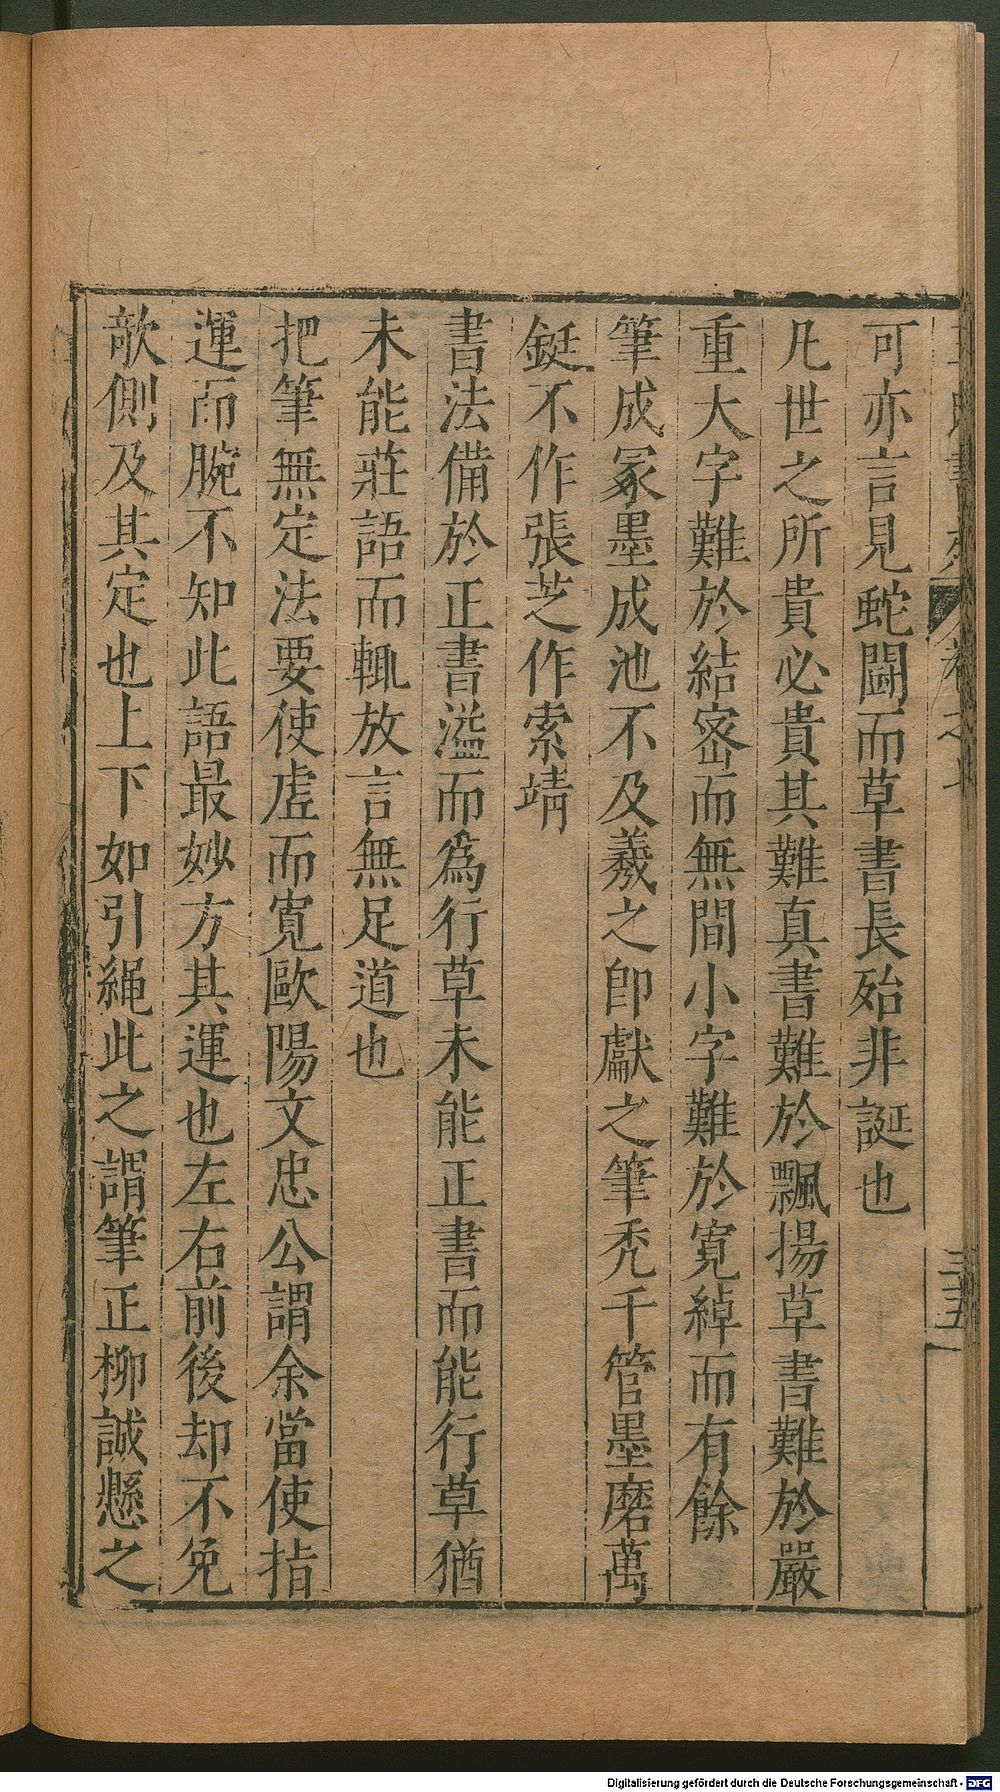 可亦言見蛇闘而草書長殆非誕也
凡世之所貴必貴其難真書難於飄揚草書難於嚴
重大字難於結宻而無間小字難於寛綽而有餘
筆成冢墨成池不及羲之卽獻之筆禿千管墨磨萬
鋌不作張芝作索靖
書法備於正書溢而為行草未能正書而能行草猶
未能莊語而輒放言無足道也
把筆無定法要使虛而寛歐陽文忠公謂余當使指
運而腕不知此語最妙方其運也左右前後却不免
欹側及其定也上下如引繩此之謂筆正柳誠懸之
Digitalisierung gefördert durch die Deutsche Forschungsgemeinschaft - DFG